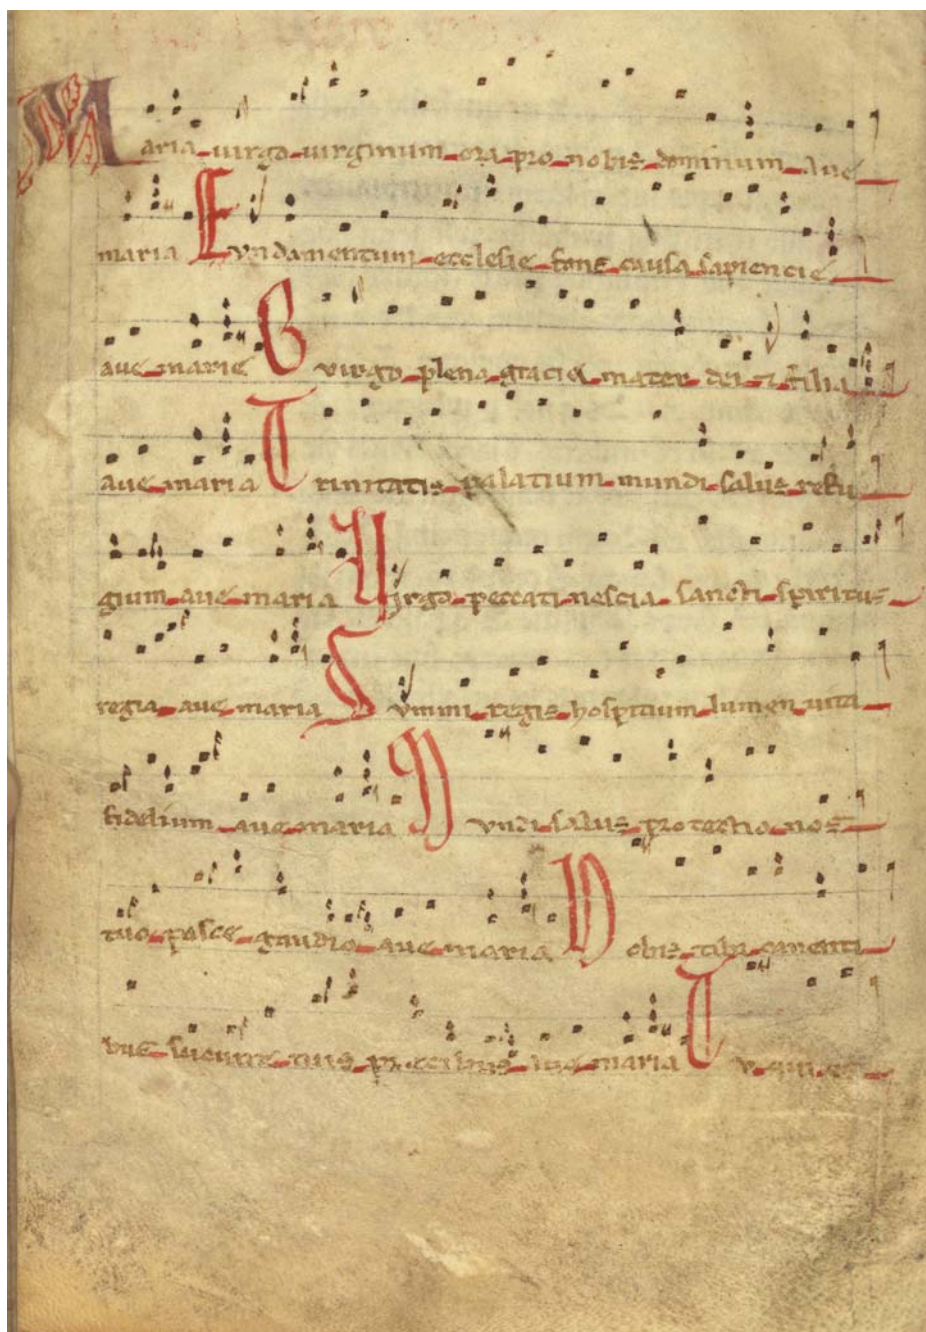 Maria virgo virginum ora pro nobis dominum aue
maria Fundamentum ecclesie fons causa sapiencie
aue marie O virgo plena gracie mater dei et filia
aue maria Trinitatis palatium mundi salus refu
gium aue maria Virgo peccati nescia sancti spiritus
regia aue maria Summi regis hospitium lumen
fidelium aue maria Mundi salus protectio nos
tuo pasce gaudio aue maria Nobis tibi canenti
bus tuis precibus aue maria Tu qui es